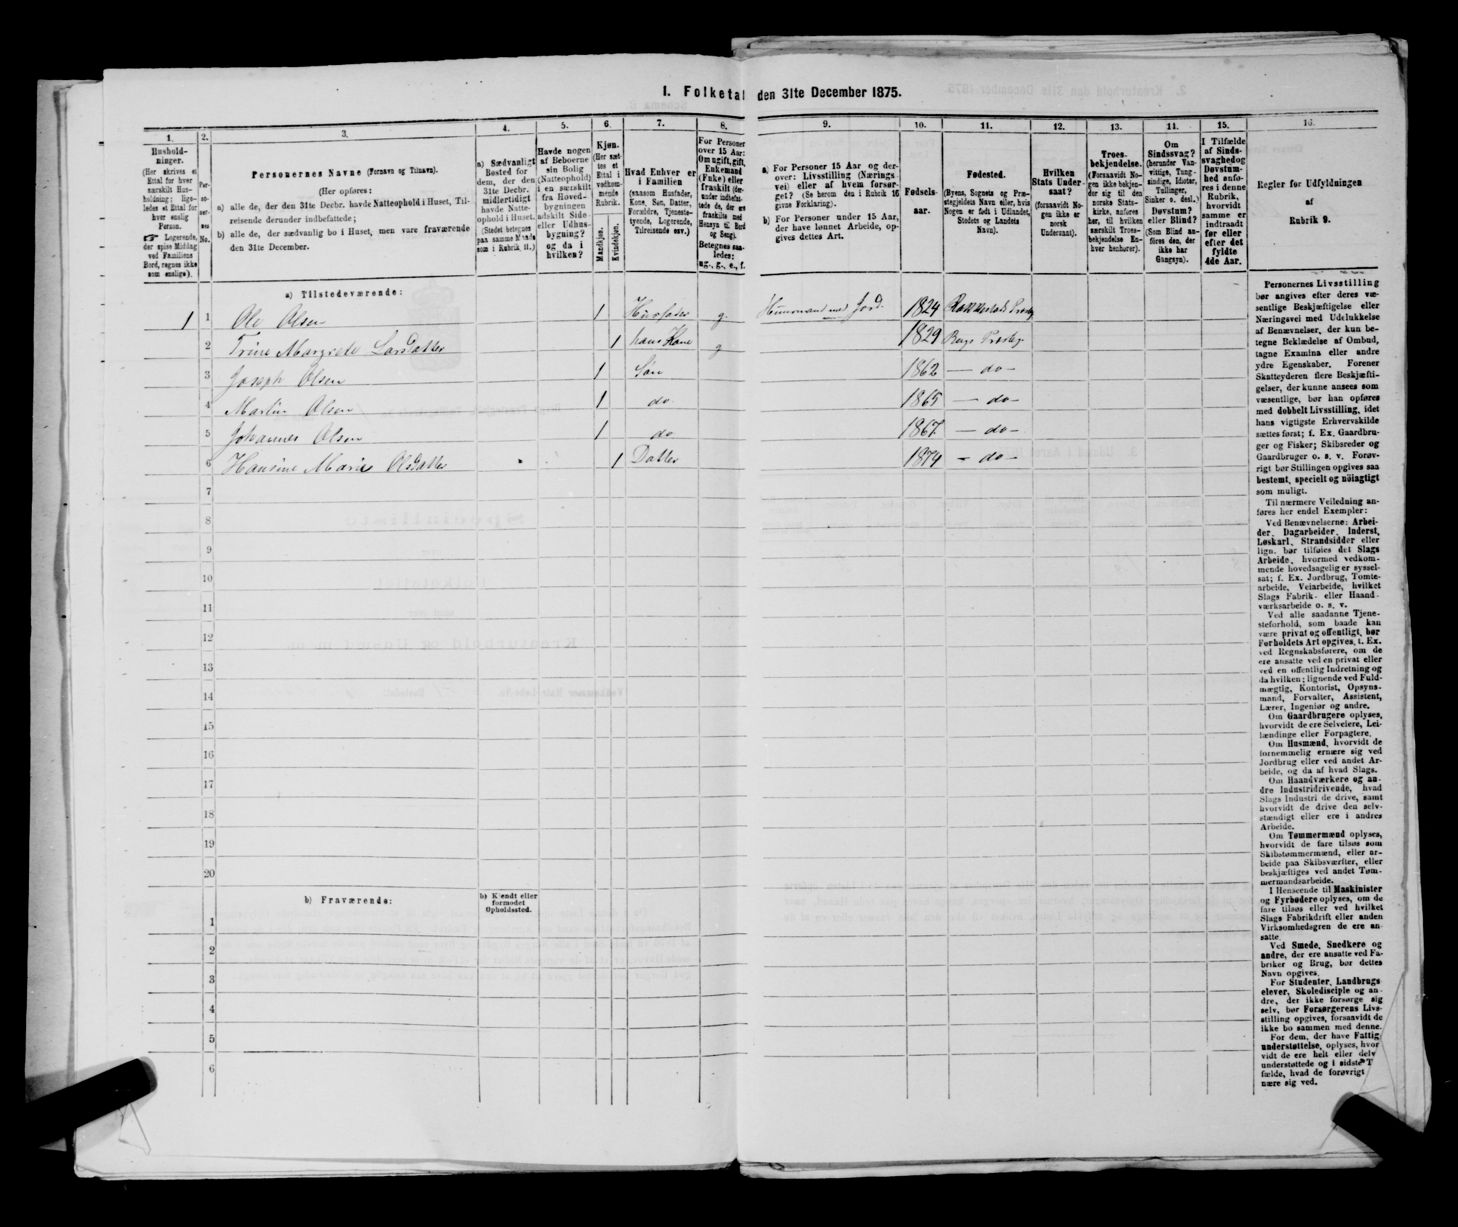 I. Folketal den 31te December 1875.
1.
2.
3.
4.
5.
6.
7.
8.
9.
10.
11.
12.
13.
14.
15.
16.
Hushold-
ninger.
(Her skrives et
Ettal for hver
særskilt Hus-
holdning; lige-
ledes et Ettal for
hver enslig
Person.
☞ Logerende,
der spise Middag
ved Familiens
Bord, regnes ikke
som enslige).
Per-
so-
ner-
nes
No.
Personernes Navne (Fornavn og Tilnavn).
(Her opføres:
a) alle de, der den 31te Decbr. havde Natteophold i Huset, Til-
reisende derunder indbefattede;
b) alle de, der sædvanlig bo i Huset, men vare fraværende
den 31te December.
a) Sædvanligt
Bosted for
dem, der den
31te Decbr.
midlertidigt
havde Natte-
ophold i Huset.
(Stedet betegnes
paa samme Maade
som i Rubrik 11.)
Havde nogen
af Beboerne
sin Bolig
(Natteophold)
i en særskilt
fra Hoved-
bygningen
adskilt Side-
eller Udhus-
bygning?
og da i
hvilken?
Kjøn.
(Her sæt-
tes et
Ettal i
vedkom-
mende
Rubrik.
Mandkjøn.
Kvindekjøn.
Hvad Enhver er
i Familien
(saasom Husfader,
Kone, Søn, Datter,
Forældre, Tjeneste-
tyende, Logerende,
Tilreisende osv.)
For Personer
over 15 Aar:
Om ugift, gift,
Enkemand
(Enke) eller
fraskilt (der-
under indbefat-
tede de, der ere
fraskilte med
Hensyn til Bord
og Seng).
Betegnes saa-
ledes:
ug., g., e., f.
a) For Personer 15 Aar og der-
over: Livsstilling (Nærings-
vei) eller af hvem forsør-
get? (Se herom den i Rubrik 16
givne Forklaring).
b) For Personer under 15 Aar,
der have lønnet Arbeide, op-
gives dettes Art.
Fødsels-
aar.
Fødested.
(Byens, Sognets og Præ-
stegjeldets Navn eller, hvis
Nogen er født i Udlandet,
Stedets og Landets
Navn).
Hvilken
Stats Under-
saat?
(foruaavidt No-
gen ikke er
norsk
Undersaat).
Troes-
bekjendelse.
(Forsaavidt No-
gen ikke bekjen-
der sig til den
norske Stats-
kirke, anføres
her, til hvilken
særskilt Troes-
bekjendelse En-
hver henhører).
Om
Sindssvag?
(herunder Van-
vittige, Tung-
sindige, Idioter,
Tullinger,
Sinker o. desl.)
Døvstum?
eller Blind?
(Som Blind an-
føres den, der
ikke har
Gangsyn).
I Tilfælde
af Sinds-
svaghed og
Døvstum-
hed anfø-
res i denne
Rubrik,
hvorvidt
samme er
indtraadt
før eller
efter det
fyldte
4de Aar.
Regler for Udfyldningen
af
Rubrik 9.
a) Tilstedeværende:
1 1 Ole Olsen 1 Husfader g. Huusmand med Jord. 1824 Rakkestads Prestg.
2 Trine Margrete Larsdatter 1 hans Kone g 1829 Bergs Prestg.
3 Joseph Olsen 1 Søn 1862 — do —
4 Martin Olsen 1 do. 1865 — do —
5 Johannes Olsen 1 do 1867 — do —
6 Hansine Marie Olsdatter 1 Datter 1874 — do —
7
8
9
10
11
12
13
14
15
16
17
18
19
20
b) Fraværende:
b) Kjendt eller
formodet
Opholdssted.
1
2
3
4
5
6
Personernes Livsstilling
bør angives efter deres væ-
sentlige Beskjæftigelse eller
Næringsvei med Udelukkelse
af Benævnelser, der kun be-
tegne Beklædelse af Ombud,
tagne Examina eller andre
ydre Egenskaber. Forener
Skatteyderen flere Beskjæfti-
gelser, der kunne ansees som
væsentlige, bør han opføres
med dobbelt Livsstilling, idet
hans vigtigste Erhvervskilde
sættes først; f. Ex. Gaardbru-
ger og Fisker; Skibsreder og
Gaardbruger o. s. v. Forøv-
rigt bør Stillingen opgives saa
bestemt, specielt og nöiagtigt
som muligt.
Til nærmere Veiledning an-
føres her endel Exempler:
Ved Benævnelserne: Arbei-
der, Dagarbeider, Inderst,
Løskarl, Strandsidder eller
lign. bør tilføies det Slags
Arbeide, hvormed vedkom-
mende hovedsagelig er syssel-
sat; f. Ex. Jordbrug, Tomte-
arbeide, Veiarbeide, hvilket
Slags Fabrik- eller Haand-
værksarbeide o. s. v.
Ved alle saadanne Tjene-
steforhold, som baade kan
være privat og offentligt, bør
Forholdets Art opgives, t. Ex.
ved Regnskabsførere, om de
ere ansatte ved en privat eller
ved en offentlig Indretning og
da hvilken; lignende ved Fuld-
mægtig, Kontorist, Opsyns-
mand, Forvalter, Assistent,
Lærer, Ingeniør og andre.
Om Gaardbrugere oplyses,
hvorvidt de ere Selveiere, Lei-
lændinge eller Forpagtere.
Om Husmænd, hvorvidt de
fornemmelig ernære sig ved
Jordbrug eller ved andet Ar-
beide, og da af hvad Slags.
Om Haandværkere og an-
dre Industridrivende, hvad
Slags Industri de drive, samt
hvorvidt de drive den selv-
stændigt eller ere i andres
Arbeide.
Om Tømmermænd oplyses,
hvorvidt de fare tilsøs som
Skibstømmermænd, eller ar-
beide paa Skibsværfter, eller
beskjæftiges ved andet Tøm-
mermandsarbeide.
I Henseende til Maskinister
og Fyrbødere oplyses, om de
fare tilsøs eller ved hvilket
Slags Fabrikdrift eller anden
Virksomhedsgren de ere an-
satte.
Ved Smede, Snedkere og
andre, der ere ansatte ved Fa-
briker og Brug, bør dettes
Navn opgives.
For Studenter, Landbrugs-
elever, Skoledisciple og an-
dre, der ikke forsørge sig
selv, bør Forsørgerens Livs-
stilling opgives, forsaavidt de
ikke bo sammen med denne.
For dem, der have Fattig-
understøttelse, oplyses, hvor-
vidt de ere helt eller delv
understøttede og i sidste T
fælde, hvad de forøvrigt
nære sig ved.